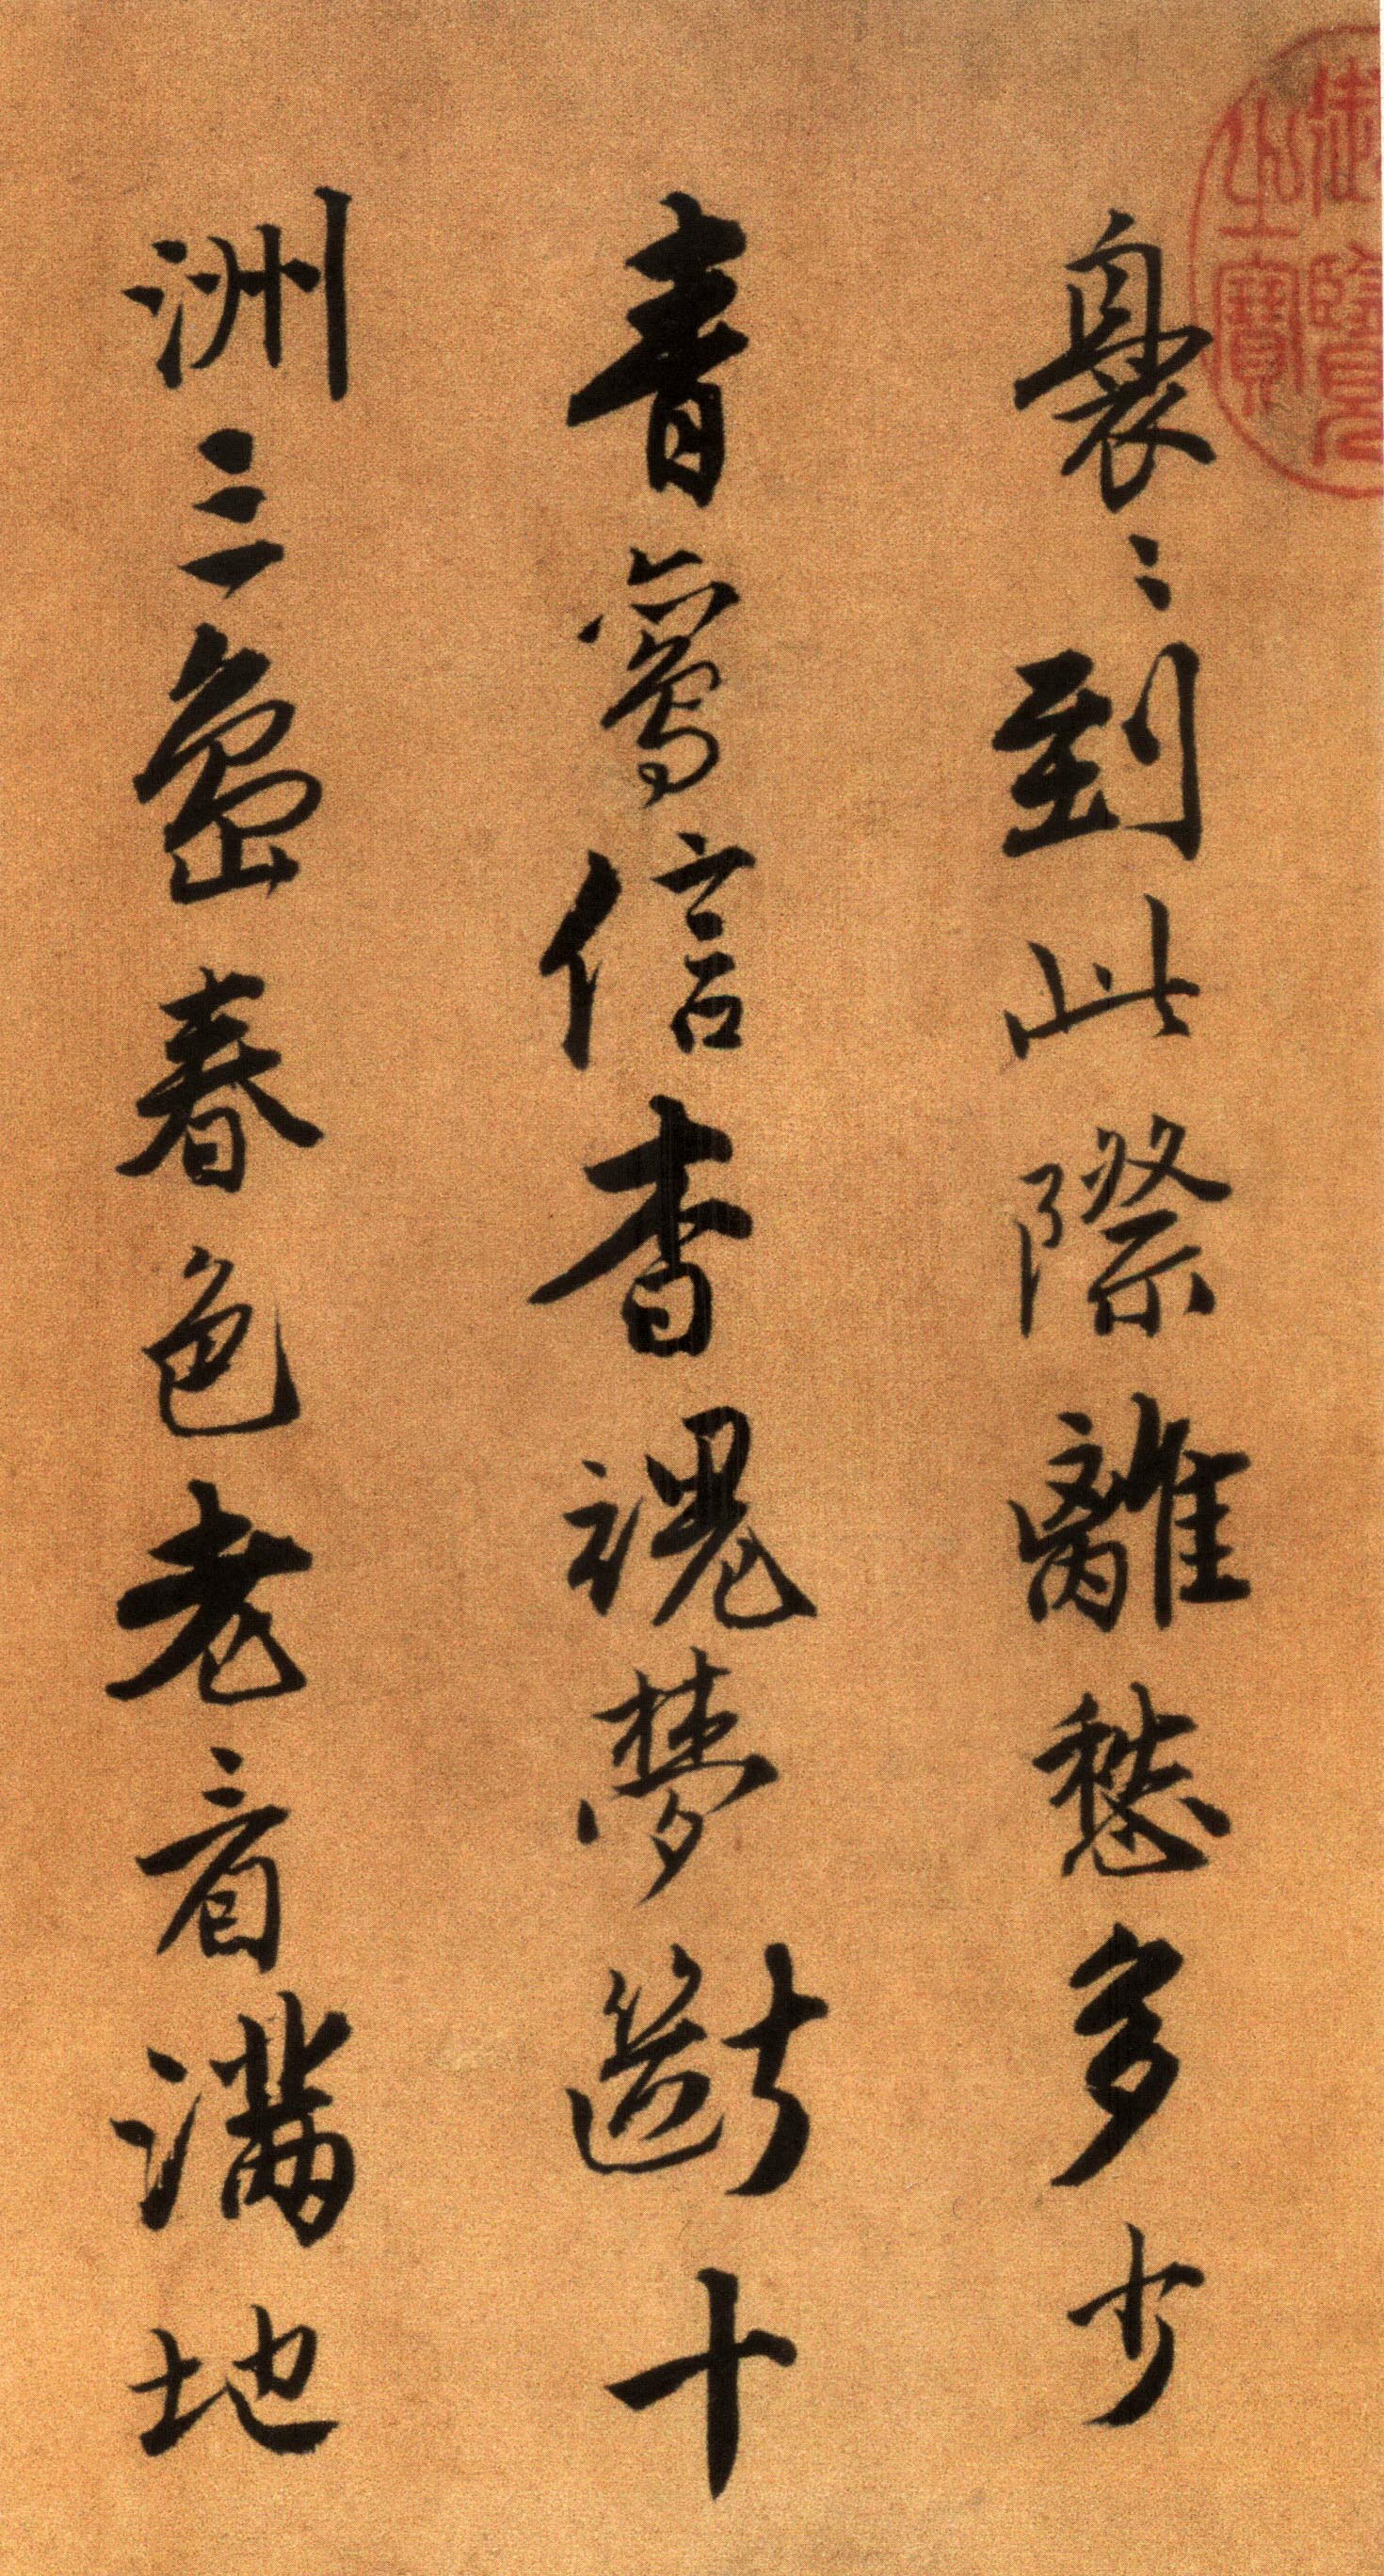 御覽之寶
裊〻到此際離愁多少
青鸞信杳魂夢斷十
洲三島春色老看滿地